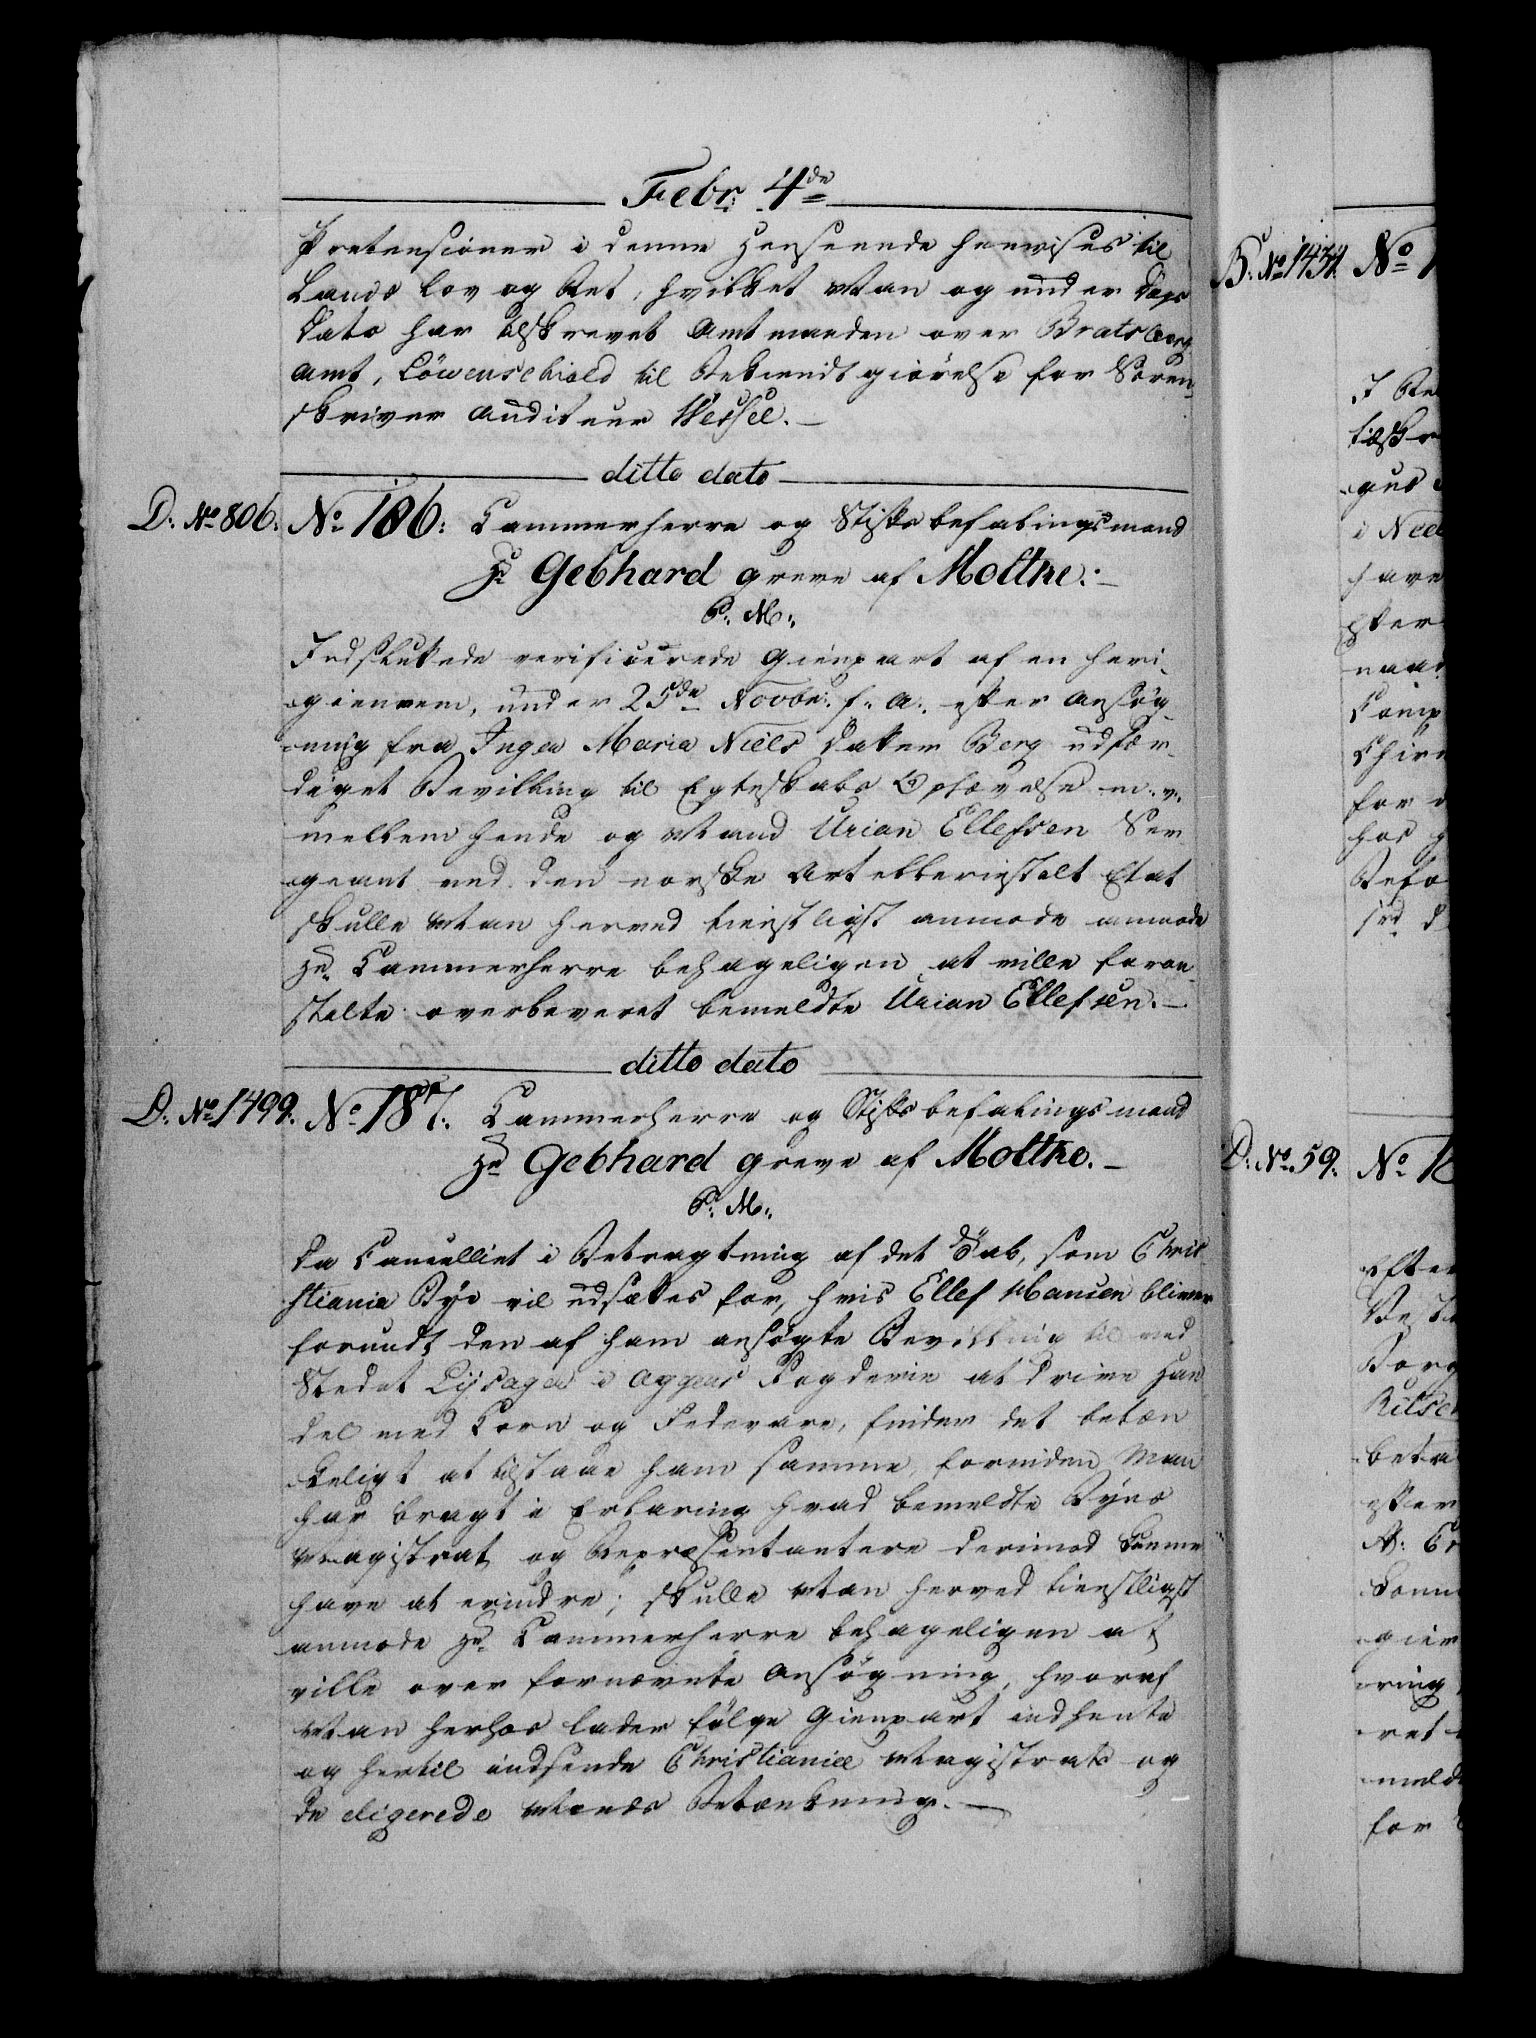 Febr: 4de
Prætensioner i denne Henseende henvises til
Lands Lov og Ret, hvilket Man og under Dags
Dato har tilskrevet Amtmanden over Bratsberg
Amt, Löwenschiold til Bekiendtgiörelse for Soren-
skriver Auditeur Wessel.
ditto dato
D: No 806. No 186: Cammerherre og Stiftsbefalingsmand
Hr Gebhard Greve af Moltke.
P. M.
Indsluttede verificerede Gienpart af en heri-
giennem, under 25de Novbr: f. A. efter Ansøg-
ning fra Inger Maria Niels Datter Berg udfær-
diget Bevilling til Egteskabs Ophævelse m. v.
mellem hende og Mand Urian Ellefsen Ser-
geant ved den norske Artelleriestalt Etat
skulle Man herved tienstligst anmode anmode
Hr Cammerherre behageligen at ville foran-
stalte overleveret bemeldte Urian Ellefsen.
ditto dato
D: No 1499. No 187. Cammerherre og Stiftsbefalingsmand
Hr Gebhard Greve af Moltke.
P. M.
Da Cancelliet i Betragtning af det Tab, som Chri-
stiania Bye vil udsættes for, hvis Ellef Hansen bliver
forundt den af ham ansøgte Bevilling til ved
Stedet Lysager i Aggers Fogderie at drive Han-
del med Korn og Fedevare, finder det betæn-
keligt at tilstaae ham samme, forinden Man
har bragt i Erfaring hvad bemeldte Byes
Magistrat og Repræsentantere derimod kunne
have at erindre; skulle Man herved tienstligst
anmode Hr Cammerherre behageligen at
ville over fornævnte Ansøgning, hvoraf
Man herhos lader følge Gienpart indhente
og hertil indsende Christianiæ Magistrats og
de eligerede Mænds Betænkning.
B: No 1434. No 1
D: No 59. No 1